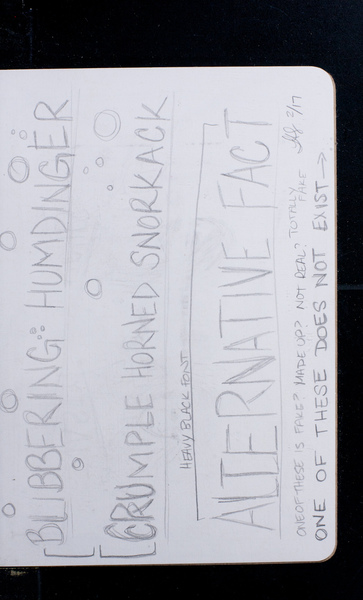 BLIBBERING HUMDINGER
CRUMPLE HORNED SNORKACK
HEAVY BLACK FONT
ALTERNATIVE FACT
ONE OF THESE IS FAKE? MADE UP? NOT REAL? TOTALLY FAKE
2/17
ONE OF THESE DOES NOT EXIST →